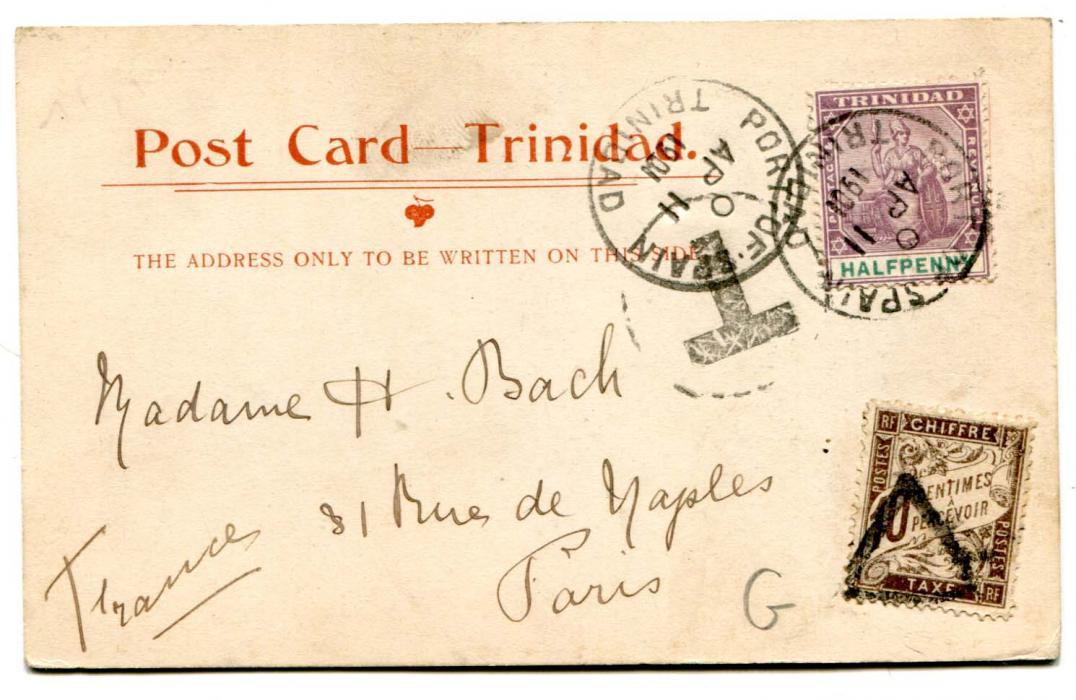 Post Card—Trinidad.
THE ADDRESS ONLY TO BE WRITTEN ON THIS SIDE
PORT OF SPAIN
TRINIDAD
AP 11
1901
T
TRINIDAD
POSTAGE
REVENUE
HALFPENNY
PORT OF SPAIN
TRINIDAD
AP 11
1901
Madame H. Bach
31 Rue de Naples
Paris
France
G
RF CHIFFRE
POSTES
CENTIMES
À
PERCEVOIR
POSTES
TAXE RF